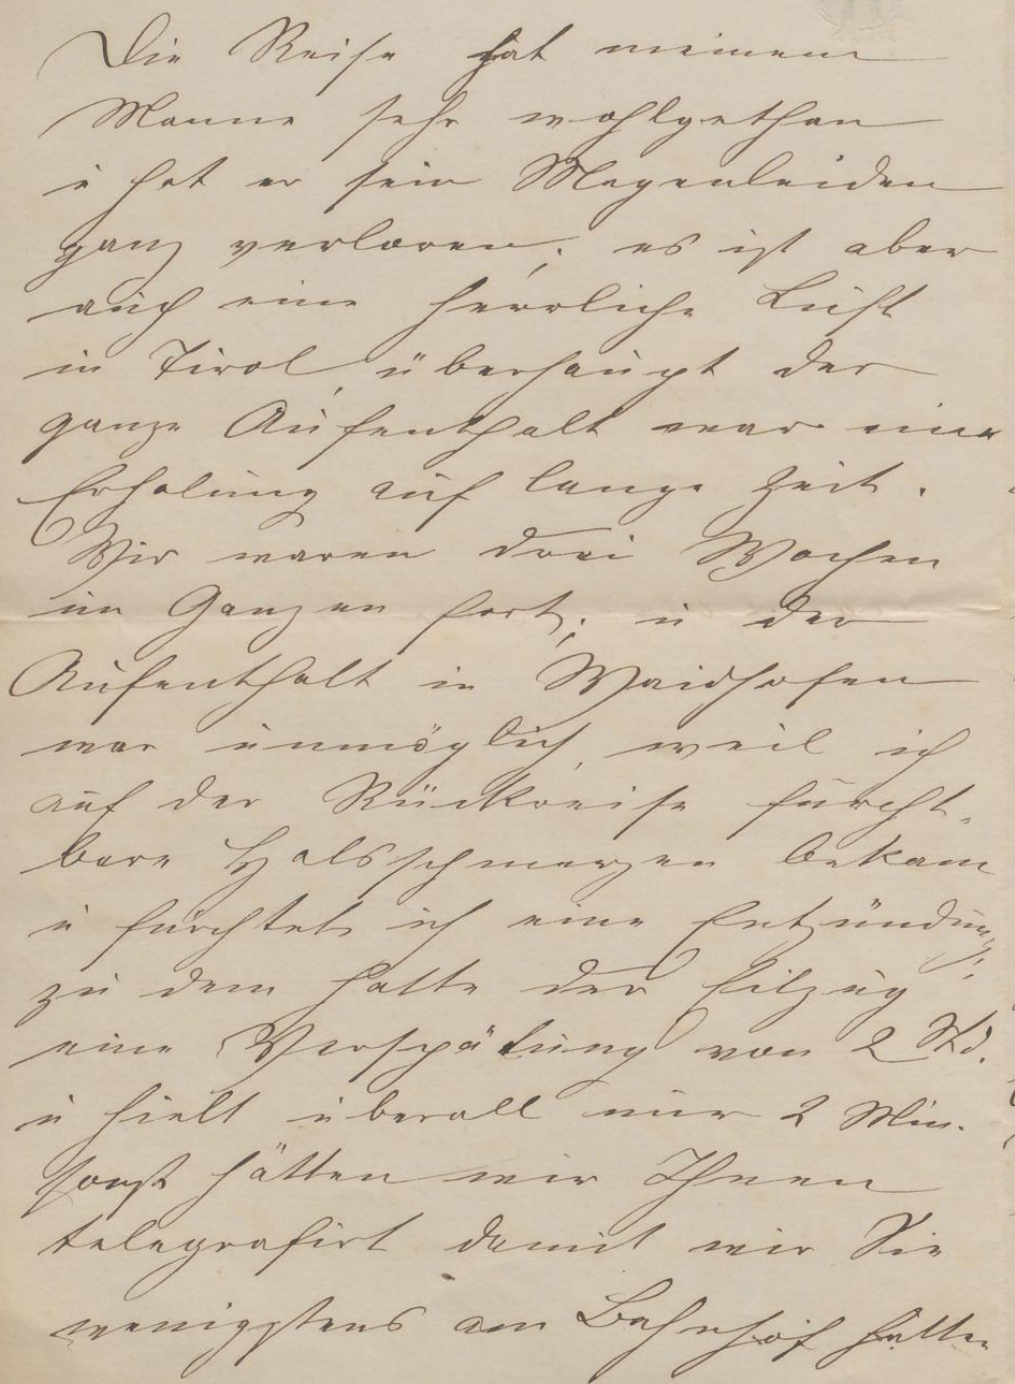 Die Reise hat meinem
Manne sehr wohlgethan
u hat er sein Magenleiden
ganz verloren; es ist aber
auch eine herrliche Luft
in Tirol, überhaupt der
ganze Aufenthalt war eine
Erholung auf lange Zeit.
Wir waren drei Wochen
im Ganzen fort; u der
Aufenthalt in Waidhofen
war unmöglich, weil ich
auf der Rückreise furcht-
bare Halsschmerzen bekam
u fürchtete ich eine Entzündung;
zu dem hatte der Eilzug
eine Verspätung von 2 Std.
u hielt überall nur 2 Min.
sonst hätten wir Ihnen
telegrafirt damit wir Sie
wenigstens am Bahnhof hätten